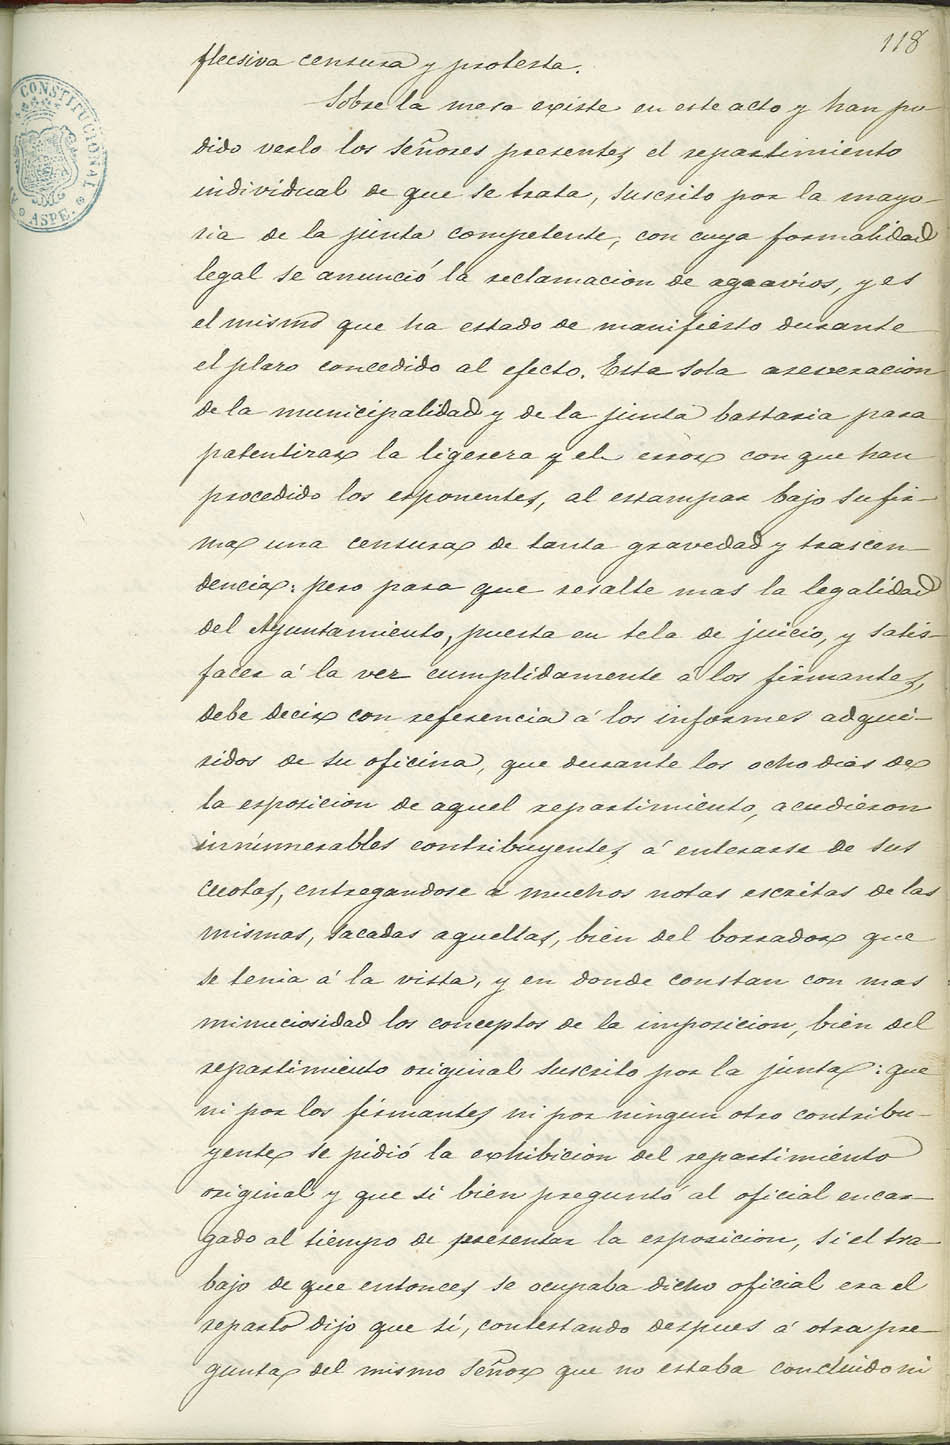 118
flecsiva censura y protesta.
Sobre la mesa existe en este acto y han po
dido verlo los Señores presentes, el repartimiento
individual de que se trata, suscrito por la mayo-
ria de la junta competente, con cuya formalidad
legal se anunció la reclamacion de agravios, y es
el mismo que ha estado de manifiesto durante
el plazo concedido al efecto. Esta sola aseveracion
de la municipalidad y de la junta bastaria para
patentizar la ligereza y el error con que han
procedido los esponentes, al estampar bajo su fir-
ma una censura de tanta gravedad y trascen-
dencia: pero para que resalte mas la legalidad
del Ayuntamiento, puesta en tela de juicio, y satis-
facer á la vez cumplidamente á los firmantes,
debe decir con referencia á los informes adqui-
ridos de su oficina, que durante los ocho dias de
la esposicion de aquel repartimiento, acudieron
innumerables contribuyentes á enterarse de sus
cuotas, entregandose á muchos notas escritas de las
mismas, sacadas aquellas, bien del borrador que
se tenia á la vista, y en donde constan con mas
minuciosidad los conceptos de la imposicion, bien del
repartimiento original suscrito por la junta: que
ni por los firmantes ni por ningun otro contribu-
yente se pidió la exhibicion del repartimiento
original y que si bien preguntó al oficial encar-
gado al tiempo de presentar la esposicion, si el tra-
bajo de que entonces se ocupaba dicho oficial era el
reparto dijo que sí, contestando despues á otra pre-
gunta del mismo Señor que no estaba concluido ni
CONSTITUCIONAL
ASPE.